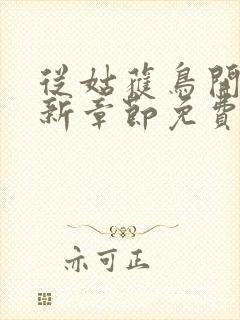 從姑蔻鳥開
新章節免費
亦可正